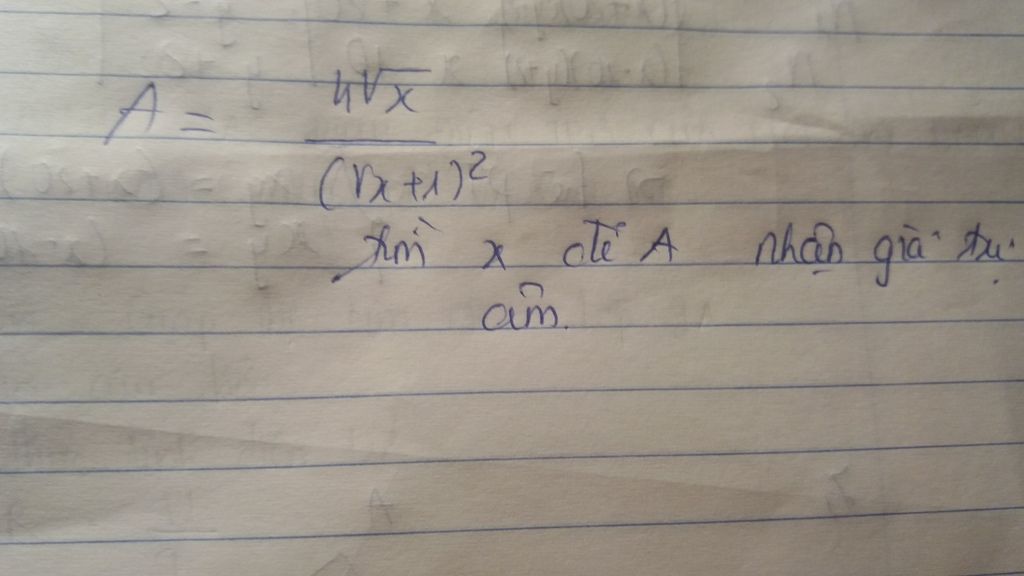 A = 4√x / (√x+1)²
tìm x để A nhận giá trị
âm.